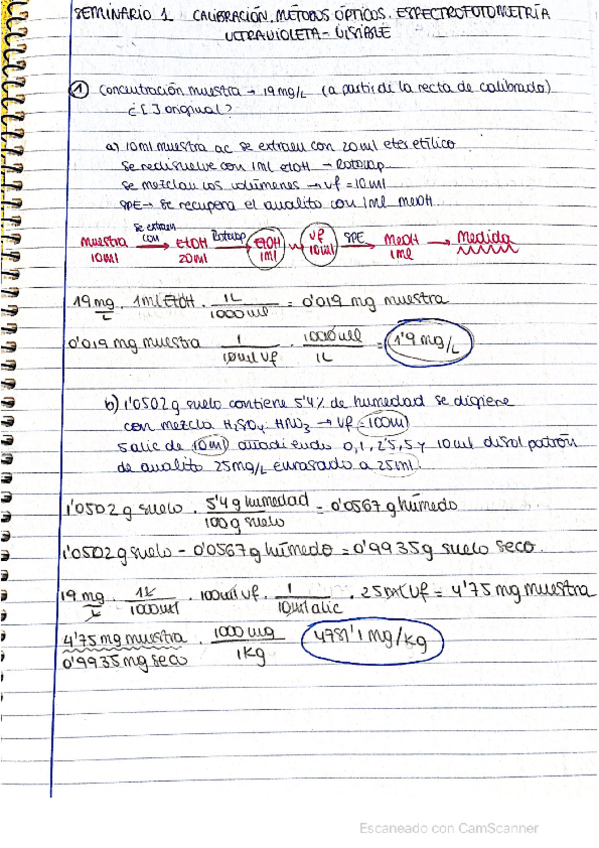 SEMINARIO 1 CALIBRACIÓN. MÉTODOS ÓPTICOS. ESPECTROFOTOMETRÍA
ULTRAVIOLETA-VISIBLE
① Concentración muestra → 19 mg/L (a partir de la recta de calibrado)
¿[ ] original?
a) 10ml muestra ac se extraen con 20ml eter etílico
Se redisuelve con 1ml etOH → Rotavap
Se mezclan los volúmenes → Vf = 10ml
SPE → Se recupera el analito con 1ml meOH.
muestra 10ml → se extraen con → EtOH 20ml → Rotavap → EtOH 1ml Vf 10ml → SPE → MeOH 1ml → Medida
19 mg/L · 1ml EtOH · 1L/1000ml = 0'019 mg muestra
0'019 mg muestra 1/10ml Vf · 1000ml/1L = 1'9 mg/L
b) 1'0502 g suelo contiene 5'4% de humedad se digiere
con mezcla H₂SO₄ HNO₃ → Vf = 100ml
Salic de 10ml añadiendo 0, 1, 2'5, 5 y 10ml disol patrón
de analito 25mg/L enrasado a 25ml.
1'0502 g suelo · 5'4 g humedad/100g suelo = 0'0567 g húmedo
1'0502 g suelo - 0'0567 g húmedo = 0'9935g suelo seco.
19 mg/L · 1L/1000ml · 100ml Vf · 1/10ml alic · 25ml Vf = 4'75 mg muestra
4'75 mg muestra/0'9935 mg seco · 1000 mg/1Kg 4781'1 mg/Kg
Escaneado con CamScanner